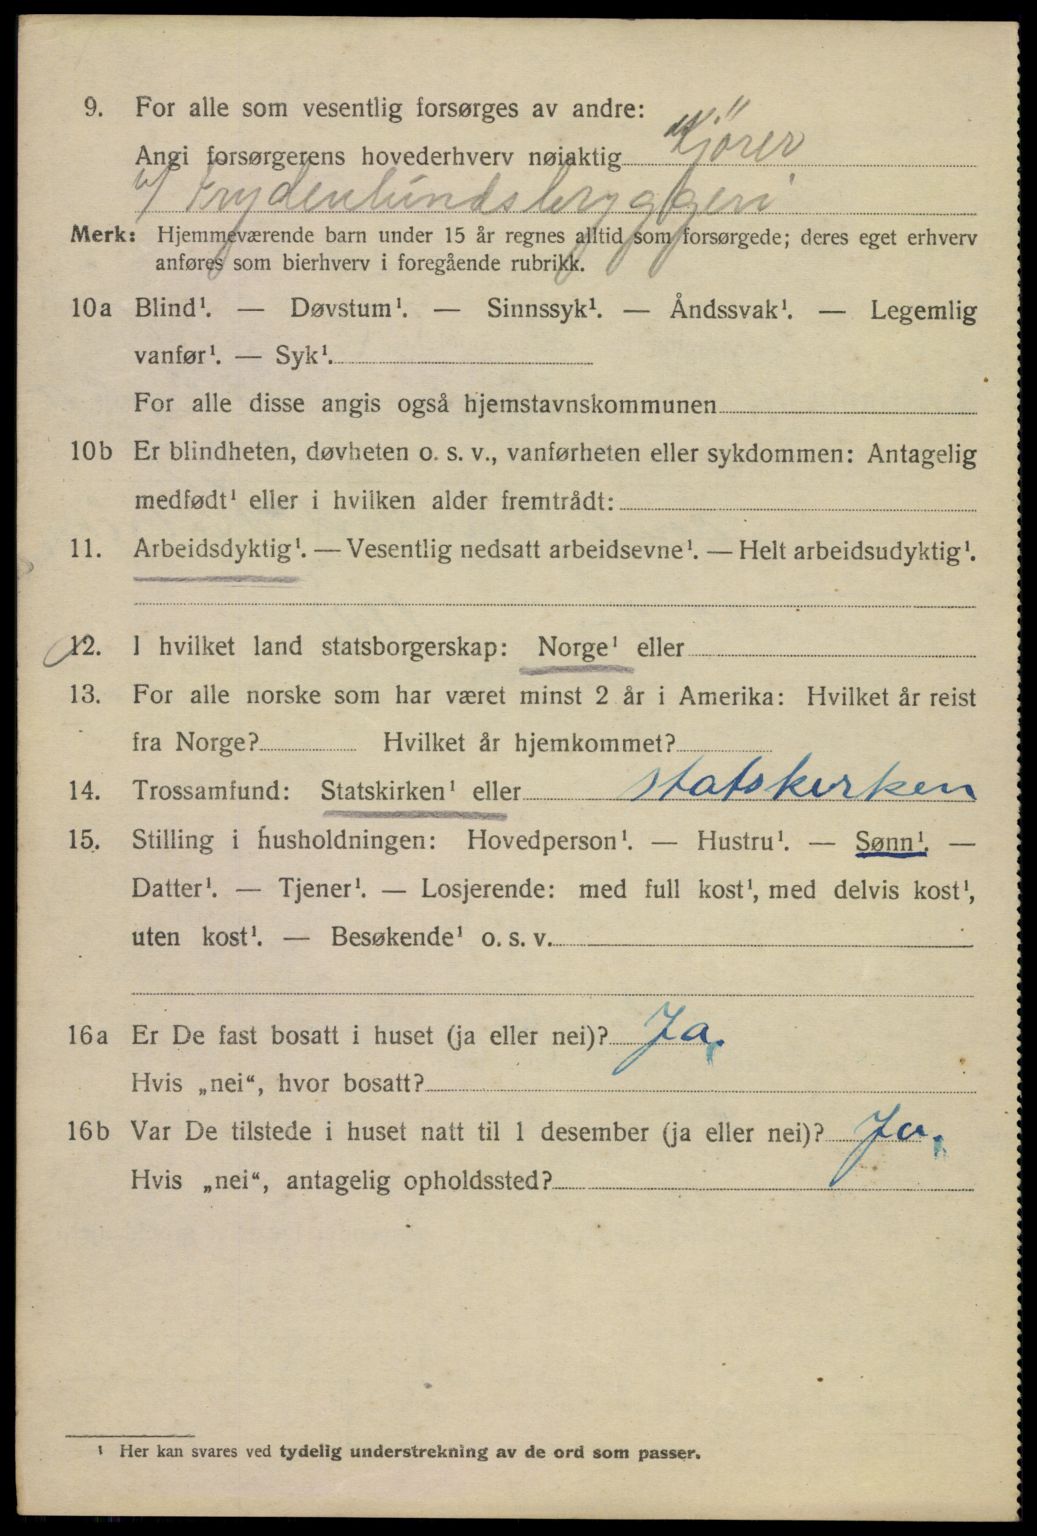 9. For alle som vesentlig forsørges av andre:
Angi forsørgerens hovederhverv nøiaktig Kjører
v/ Frydenlundsbryggeri
Merk: Hjemmeværende barn under 15 år regnes alltid som forsørgede; deres eget erhverv
anføres som bierhverv i foregående rubrikk.
10a Blind¹. — Døvstum¹. — Sinnssyk¹. — Åndssvak¹. — Legemlig
vanfør¹. — Syk¹.
For alle disse angis også hjemstavnskommunen
10b Er blindheten, døvheten o. s. v., vanførheten eller sykdommen: Antagelig
medfødt¹ eller i hvilken alder fremtrådt:
11. Arbeidsdyktig¹. — Vesentlig nedsatt arbeidsevne¹. — Helt arbeidsudyktig¹.
12. I hvilket land statsborgerskap: Norge¹ eller
13. For alle norske som har været minst 2 år i Amerika: Hvilket år reist
fra Norge? Hvilket år hjemkommet?
14. Trossamfund: Statskirken¹ eller statskirken
15. Stilling i husholdningen: Hovedperson¹. — Hustru¹. — Sønn¹. —
Datter¹. — Tjener¹. — Losjerende: med full kost¹, med delvis kost¹,
uten kost¹. — Besøkende¹ o. s. v.
16a Er De fast bosatt i huset (ja eller nei)? Ja.
Hvis „nei“, hvor bosatt?
16b Var De tilstede i huset natt til 1 desember (ja eller nei)? Ja.
Hvis „nei“, antagelig opholdssted?
¹ Her kan svares ved tydelig understrekning av de ord som passer.